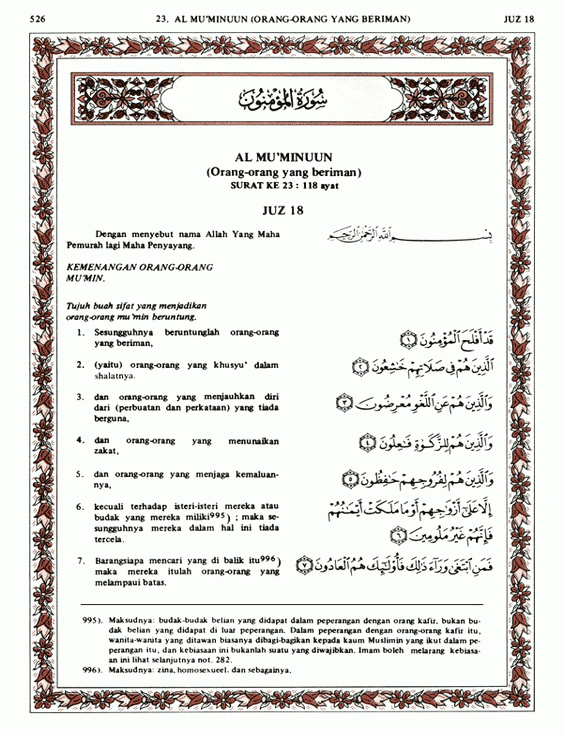 526
23. AL MU'MINUUN (ORANG-ORANG YANG BERIMAN)
JUZ 18
سُورَةُ الْمُؤْمِنُونَ
AL MU'MINUUN
(Orang-orang yang beriman)
SURAT KE 23 : 118 ayat
JUZ 18
Dengan menyebut nama Allah Yang Maha
Pemurah lagi Maha Penyayang.
بِسْمِ اللَّهِ الرَّحْمَٰنِ الرَّحِيمِ
KEMENANGAN ORANG-ORANG
MU'MIN.
Tujuh buah sifat yang menjadikan
orang-orang mu'min beruntung.
1. Sesungguhnya beruntunglah orang-orang
yang beriman,
قَدْ أَفْلَحَ الْمُؤْمِنُونَ ١
2. (yaitu) orang-orang yang khusyu' dalam
shalatnya.
الَّذِينَ هُمْ فِي صَلَاتِهِمْ خَاشِعُونَ ٢
3. dan orang-orang yang menjauhkan diri
dari (perbuatan dan perkataan) yang tiada
berguna,
وَالَّذِينَ هُمْ عَنِ اللَّغْوِ مُعْرِضُونَ ٣
4. dan orang-orang yang menunaikan
zakat,
وَالَّذِينَ هُمْ لِلزَّكَوٰةِ فَاعِلُونَ ٤
5. dan orang-orang yang menjaga kemaluan-
nya,
وَالَّذِينَ هُمْ لِفُرُوجِهِمْ حَافِظُونَ ٥
6. kecuali terhadap isteri-isteri mereka atau
budak yang mereka miliki995) ; maka se-
sungguhnya mereka dalam hal ini tiada
tercela.
إِلَّا عَلَىٰ أَزْوَاجِهِمْ أَوْ مَا مَلَكَتْ أَيْمَانُهُمْ
فَإِنَّهُمْ غَيْرُ مَلُومِينَ ٦
7. Barangsiapa mencari yang di balik itu996)
maka mereka itulah orang-orang yang
melampaui batas.
فَمَنِ ابْتَغَىٰ وَرَاءَ ذَٰلِكَ فَأُولَٰئِكَ هُمُ الْعَادُونَ ٧
995). Maksudnya: budak-budak belian yang didapat dalam peperangan dengan orang kafir, bukan bu-
dak belian yang didapat di luar peperangan. Dalam peperangan dengan orang-orang kafir itu,
wanita-wanita yang ditawan biasanya dibagi-bagikan kepada kaum Muslimin yang ikut dalam pe-
perangan itu, dan kebiasaan ini bukanlah suatu yang diwajibkan. Imam boleh melarang kebiasa-
an ini lihat selanjutnya not. 282.
996). Maksudnya: zina, homosexueel. dan sebagainya.